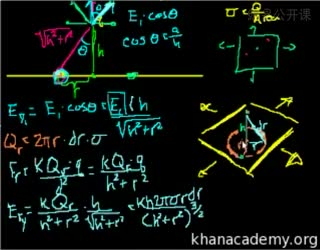 E₁ · cosθ
cosθ = a/h
σ = Q/Area
√h²+r²
θ
h
r
E_y₁ = E₁ · cosθ = E₁ h / √h²+r²
Q_r = 2πr · dr · σ
F_r = kQ_r · q / r² = kQ_r · q / h²+r²
E_y = kQ_r / h²+r² · h / √h²+r² = kh2πσrdr / (h²+r²)^3/2
khanacademy.org